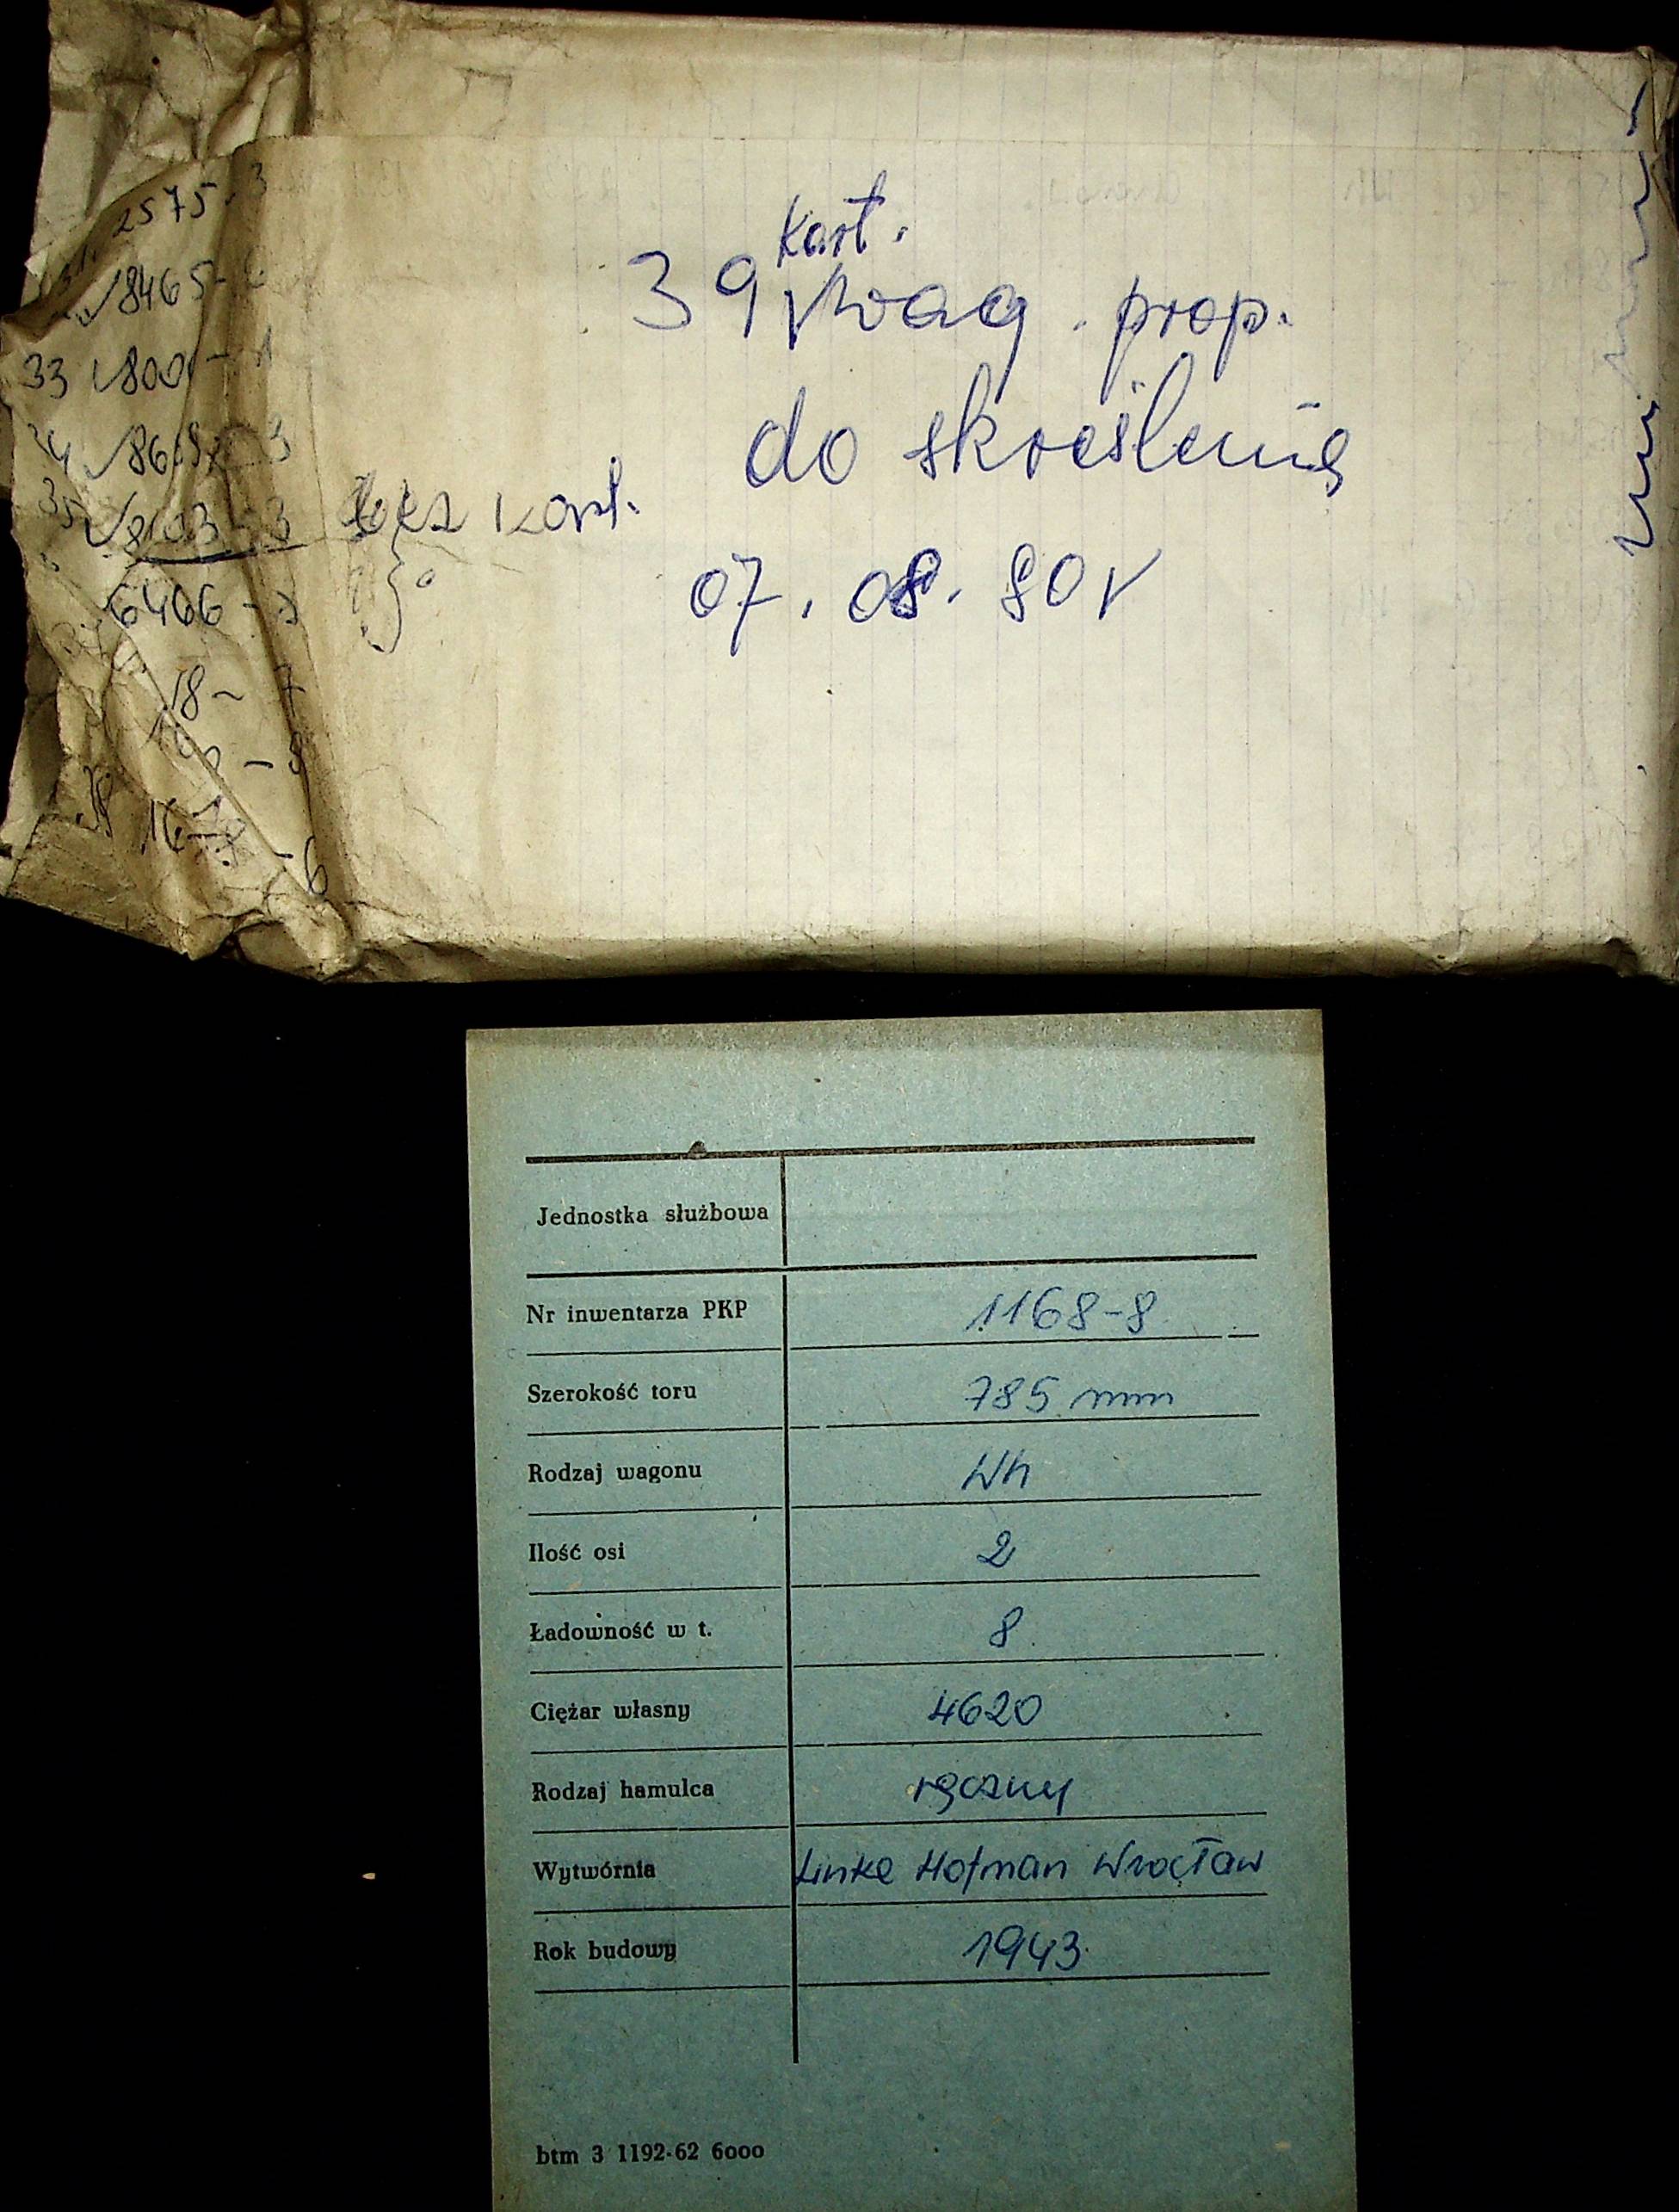 2575-3
8465-
33 800 - 1
86 3
35 8103-3 bez kart.
6466 -
18- 7
- 6
kart.
39 wag. prop.
do skreślenia
07. 08. 80 r
Jednostka służbowa
Nr inwentarza PKP 1168-8
Szerokość toru 785 mm
Rodzaj wagonu Wh
Ilość osi 2
Ładowność w t. 8
Ciężar własny 4620
Rodzaj hamulca ręczny
Wytwórnia Linke Hofman Wrocław
Rok budowy 1943
btm 3 1192-62 6000